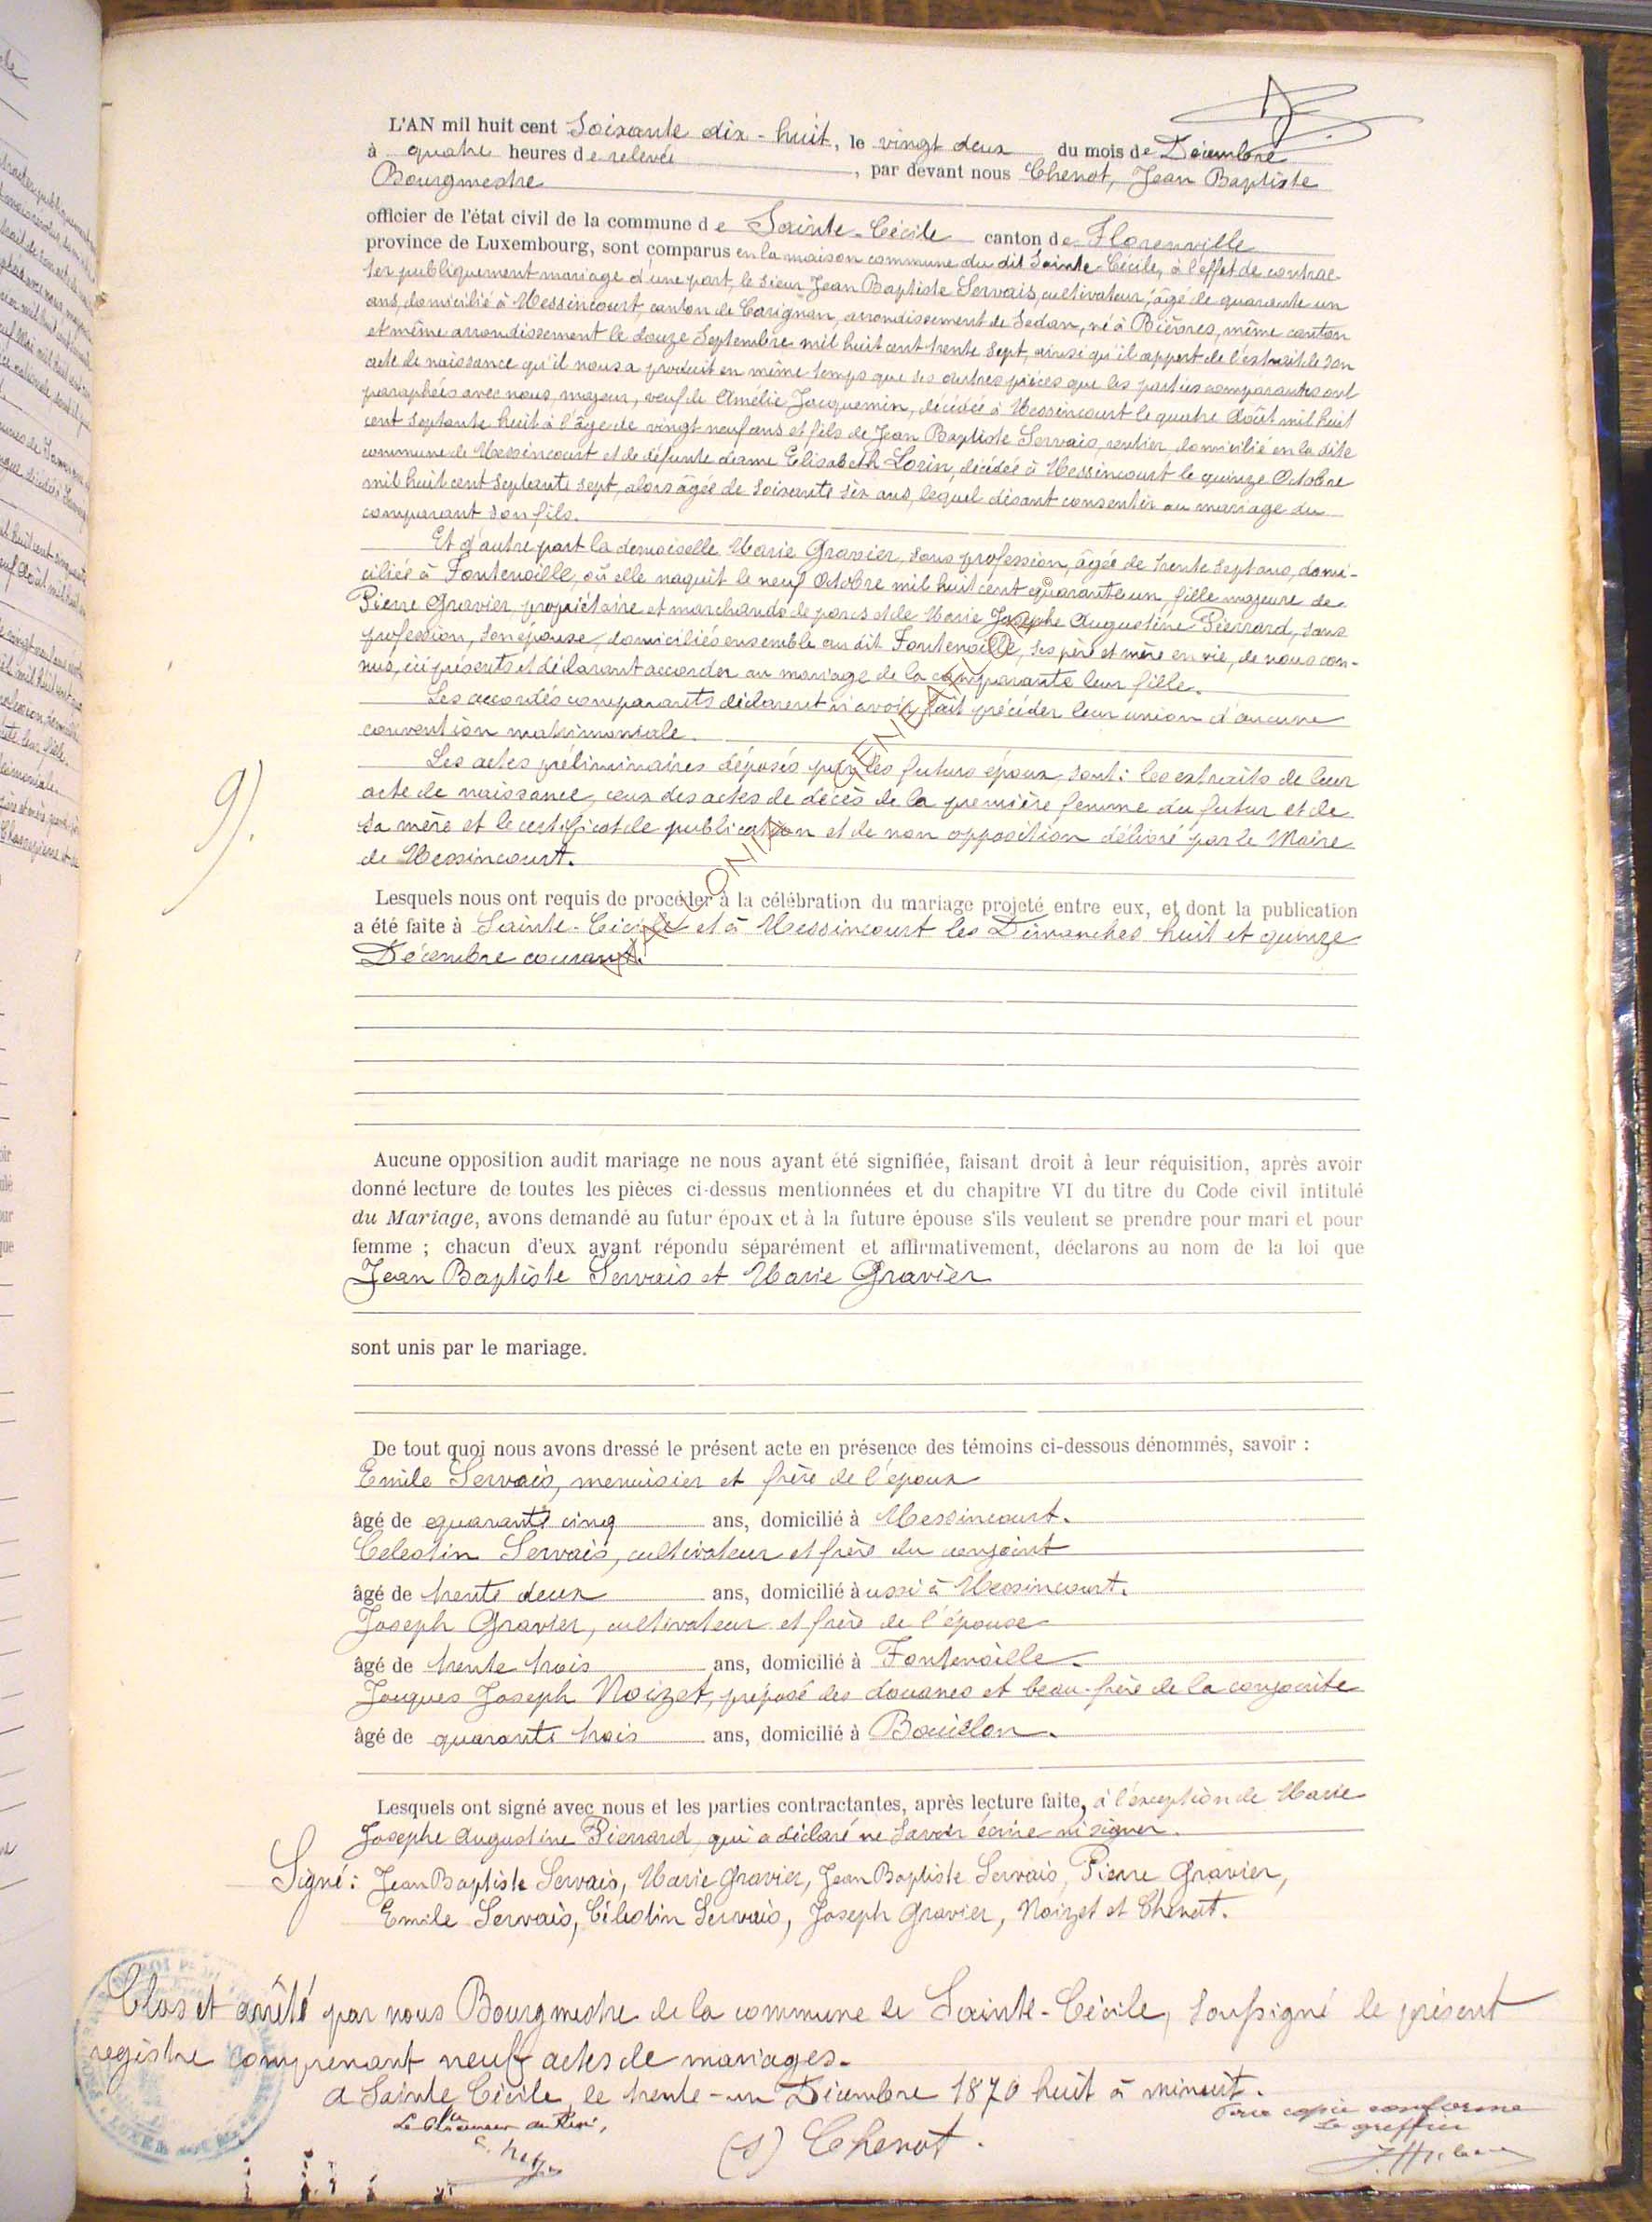 L'AN mil huit cent Soixante dix-huit, le vingt deux du mois de Décembre
à quatre heures de relevée, par devant nous Chenot, Jean Baptiste
Bourgmestre
officier de l'état civil de la commune de Sainte-Cécile canton de Florenville
province de Luxembourg, sont comparus en la maison commune du dit Sainte-Cécile, à l'effet de contrac-
ter publiquement mariage d'une part, le sieur Jean Baptiste Servais, cultivateur, âgé de quarante un
ans, domicilié à Messincourt, canton de Carignan, arrondissement de Sedan, né à Bièvres, même canton
et même arrondissement le douze Septembre mil huit cent trente sept, ainsi qu'il appert de l'extrait de son
acte de naissance qu'il nous a produit en même temps que les autres pièces que les parties comparantes ont
paraphées avec nous, majeur, veuf de Amélie Jacquemin, décédée à Messincourt le quatre Août mil huit
cent septante huit à l'âge de vingt neuf ans et fils de Jean Baptiste Servais, rentier, domicilié en la dite
commune de Messincourt et de défunte dame Elisabeth Lorin, décédée à Messincourt le quinze Octobre
mil huit cent septante sept, alors âgée de soixante six ans, lequel disant consentir au mariage du
comparant son fils.
Et d'autre part la demoiselle Marie Gravier, sans profession, âgée de trente sept ans, domi-
ciliée à Fontenoille, où elle naquit le neuf Octobre mil huit cent quarante un fille majeure de
Pierre Gravier, propriétaire et marchand de porcs et de Marie Josephe Augustine Pierrard, sans
profession, son épouse, domiciliés ensemble au dit Fontenoille, ses père et mère en vie, de nous con-
nus, ici présents et déclarant accorder au mariage de la comparante leur fille.
Les accordés comparants déclarent n'avoir fait précéder leur union d'aucune
convention matrimoniale.
Les actes préliminaires déposés par les futurs époux sont: les extraits de leur
acte de naissance, ceux des actes de décès de la première femme du futur et de
sa mère et le certificat de publication et de non opposition délivré par le Maire
de Messincourt.
9).
Lesquels nous ont requis de procéder à la célébration du mariage projeté entre eux, et dont la publication
a été faite à Sainte-Cécile et à Messincourt les Dimanches huit et quinze
Décembre courant.
Aucune opposition audit mariage ne nous ayant été signifiée, faisant droit à leur réquisition, après avoir
donné lecture de toutes les pièces ci-dessus mentionnées et du chapitre VI du titre du Code civil intitulé
du Mariage, avons demandé au futur époux et à la future épouse s'ils veulent se prendre pour mari et pour
femme ; chacun d'eux ayant répondu séparément et affirmativement, déclarons au nom de la loi que
Jean Baptiste Servais et Marie Gravier
sont unis par le mariage.
De tout quoi nous avons dressé le présent acte en présence des témoins ci-dessous dénommés, savoir :
Emile Servais, menuisier et frère de l'époux
âgé de quarante cinq ans, domicilié à Messincourt.
Celestin Servais, cultivateur et frère du conjoint
âgé de trente deux ans, domicilié aussi à Messincourt.
Joseph Gravier, cultivateur et frère de l'épouse
âgé de trente trois ans, domicilié à Fontenoille.
Jacques Joseph Noizet, préposé des douanes et beau-frère de la conjointe
âgé de quarante trois ans, domicilié à Bouillon.
Lesquels ont signé avec nous et les parties contractantes, après lecture faite, à l'exception de Marie
Josephe Augustine Pierrard, qui a déclaré ne savoir écrire ni signer.
Signé: Jean Baptiste Servais, Marie Gravier, Jean Baptiste Servais, Pierre Gravier,
Emile Servais, Célestin Servais, Joseph Gravier, Noizet et Chenot.
Clos et arrêté par nous Bourgmestre de la commune de Sainte-Cécile, soussigné le présent
registre comprenant neuf actes de mariages.
A Sainte Cécile, le trente-un Décembre 1870 huit à minuit.
(s) Chenot.
Pour copie conforme
Le greffier